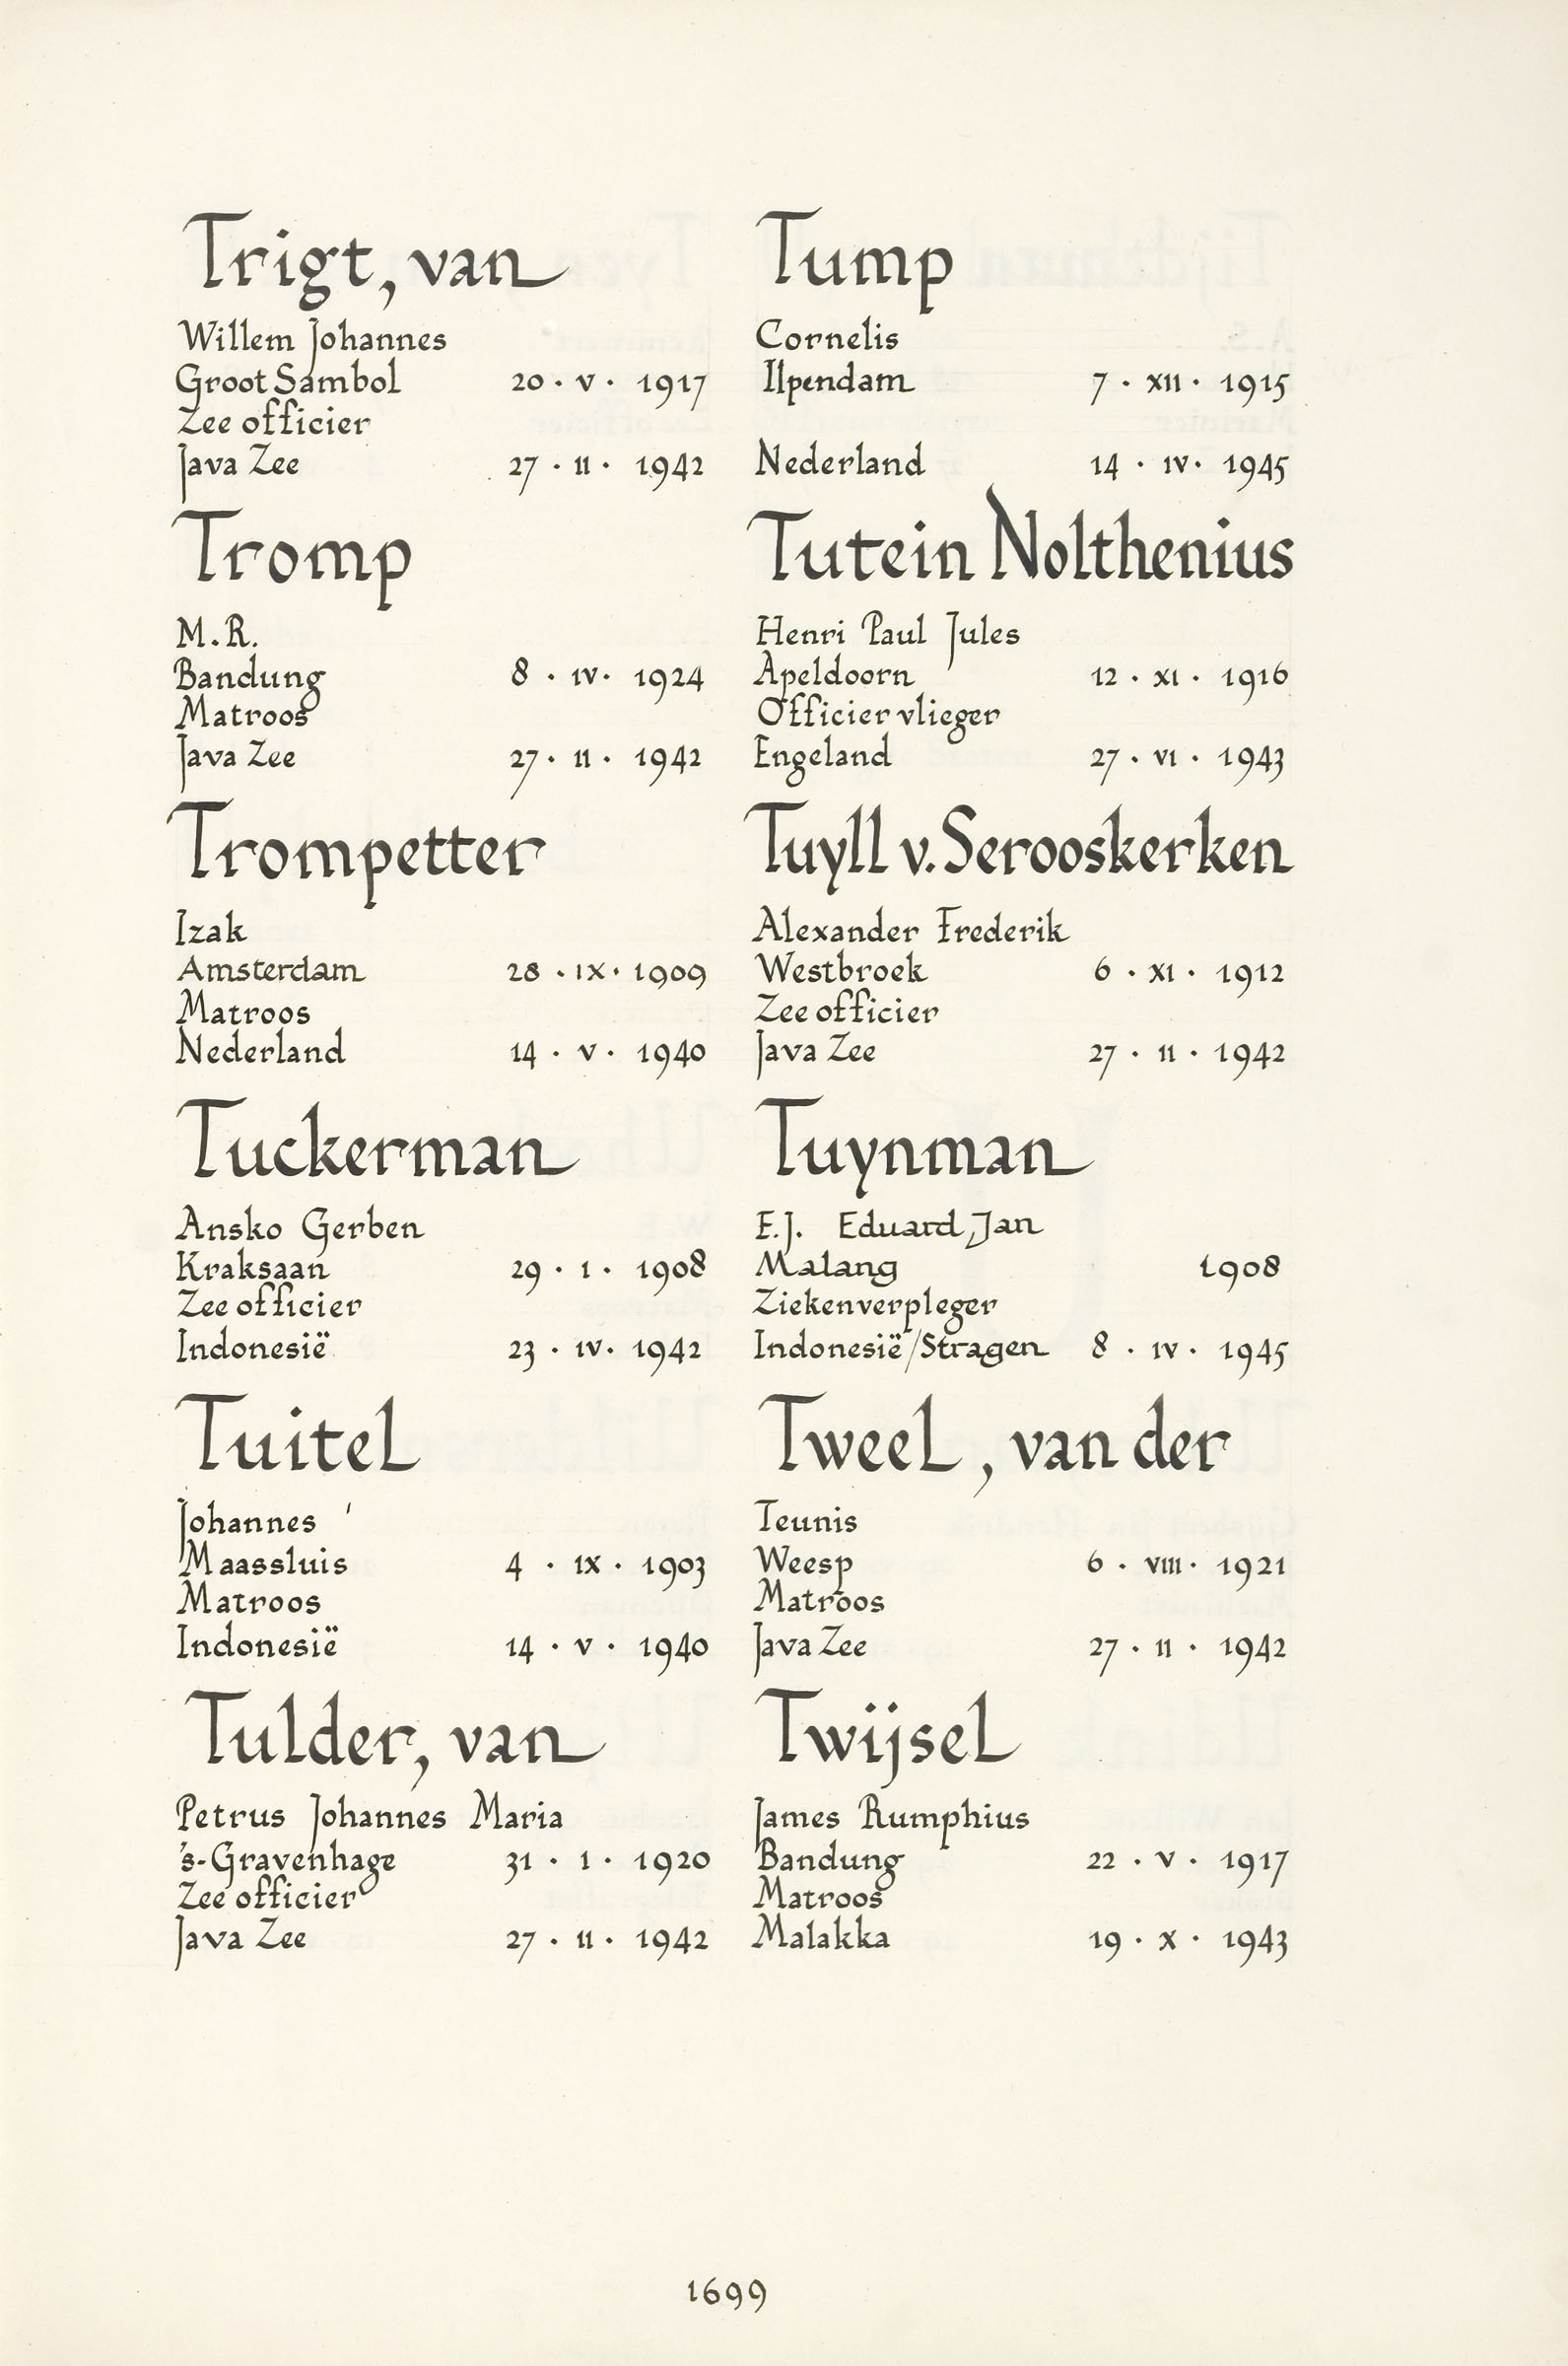 Trigt, van
Willem Johannes
Groot Sambol 20 · V · 1917
Zee officier
Java Zee 27 · II · 1942
Tromp
M.R.
Bandung 8 · IV · 1924
Matroos
Java Zee 27 · II · 1942
Trompetter
Izak
Amsterdam 28 · IX · 1909
Matroos
Nederland 14 · V · 1940
Tuckerman
Ansko Gerben
Kraksaan 29 · I · 1908
Zee officier
Indonesië 23 · IV · 1942
Tuitel
Johannes
Maassluis 4 · IX · 1903
Matroos
Indonesië 14 · V · 1940
Tulder, van
Petrus Johannes Maria
's-Gravenhage 31 · I · 1920
Zee officier
Java Zee 27 · II · 1942
Tump
Cornelis
Ilpendam 7 · XII · 1915
Nederland 14 · IV · 1945
Tutein Nolthenius
Henri Paul Jules
Apeldoorn 12 · XI · 1916
Officier vlieger
Engeland 27 · VI · 1943
Tuyll v. Serooskerken
Alexander Frederik
Westbroek 6 · XI · 1912
Zee officier
Java Zee 27 · II · 1942
Tuynman
E.J. Eduard Jan
Malang 1908
Ziekenverpleger
Indonesië/Stragen 8 · IV · 1945
Tweel, van der
Teunis
Weesp 6 · VIII · 1921
Matroos
Java Zee 27 · II · 1942
Twijsel
James Rumphius
Bandung 22 · V · 1917
Matroos
Malakka 19 · X · 1943
1699